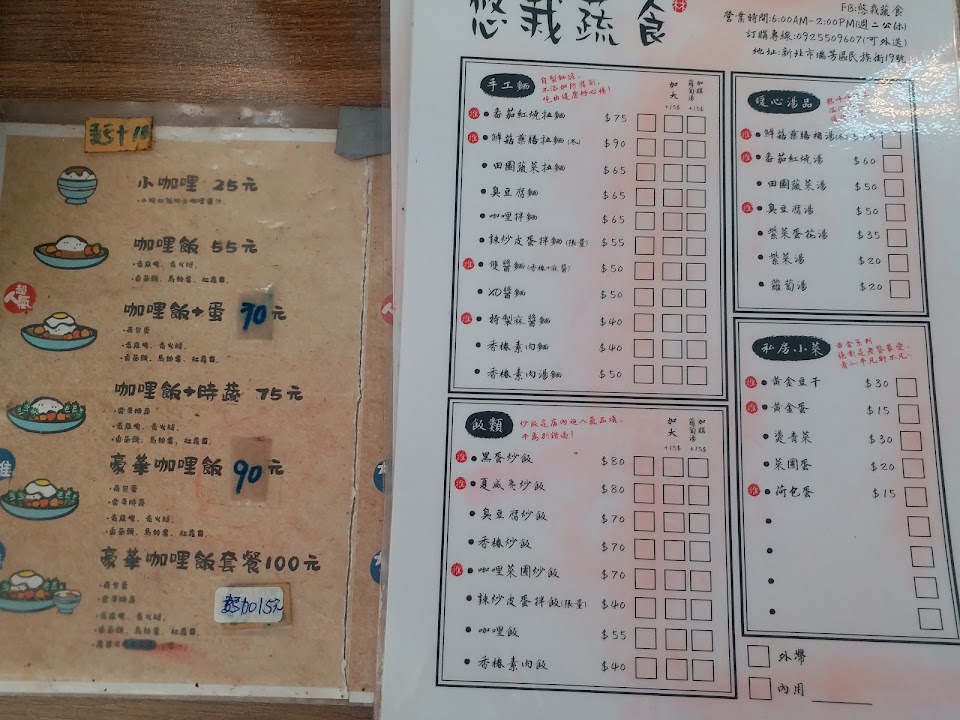 小咖哩 25元
咖哩飯 55元
咖哩飯+蛋 70元
咖哩飯+時蔬 75元
•當季時蔬
豪華咖哩飯 90元
•當季時蔬
豪華咖哩飯套餐100元
•當季時蔬
加15元
超人氣
推
悠哉蔬食
FB:悠哉蔬食
營業時間:6:00AM-2:00PM(週二公休)
訂購專線:0925509607(可外送)
地址:新北市瑞芳區民族街19號
手工麵
自製麵條,
加大
加購蘿蔔湯
+15$ +15$
推 •番茄紅燒拉麵 $75
推 •鮮菇藥膳拉麵(冬) $90
•田園蔬菜拉麵 $65
•臭豆腐麵 $65
•咖哩拌麵 $65
•辣炒皮蛋拌麵(限量) $55
推 •雙醬麵(香椿+麻醬) $50
•XO醬麵 $50
推 •特製麻醬麵 $40
•香椿素肉麵 $40
•香椿素肉湯麵 $50
飯類
炒飯是店內超人氣品項,
千萬別錯過!
加大
加購蘿蔔湯
+15$ +15$
推 •黑蛋炒飯 $80
推 •夏威夷炒飯 $80
•臭豆腐炒飯 $70
•香椿炒飯 $70
推 •咖哩菜圃炒飯 $70
•辣炒皮蛋拌飯(限量) $40
•咖哩飯 $55
•香椿素肉飯 $40
暖心湯品
推 •鮮菇藥膳補湯(冬)
推 •番茄紅燒湯 $60
•田園蔬菜湯 $50
推 •臭豆腐湯 $50
•紫菜蛋花湯 $35
•紫菜湯 $20
•蘿蔔湯 $20
私房小菜
黃金系列
推 •黃金豆干 $30
推 •黃金蛋 $15
•燙青菜 $30
•菜圃蛋 $20
推 •荷包蛋 $15
外帶
內用